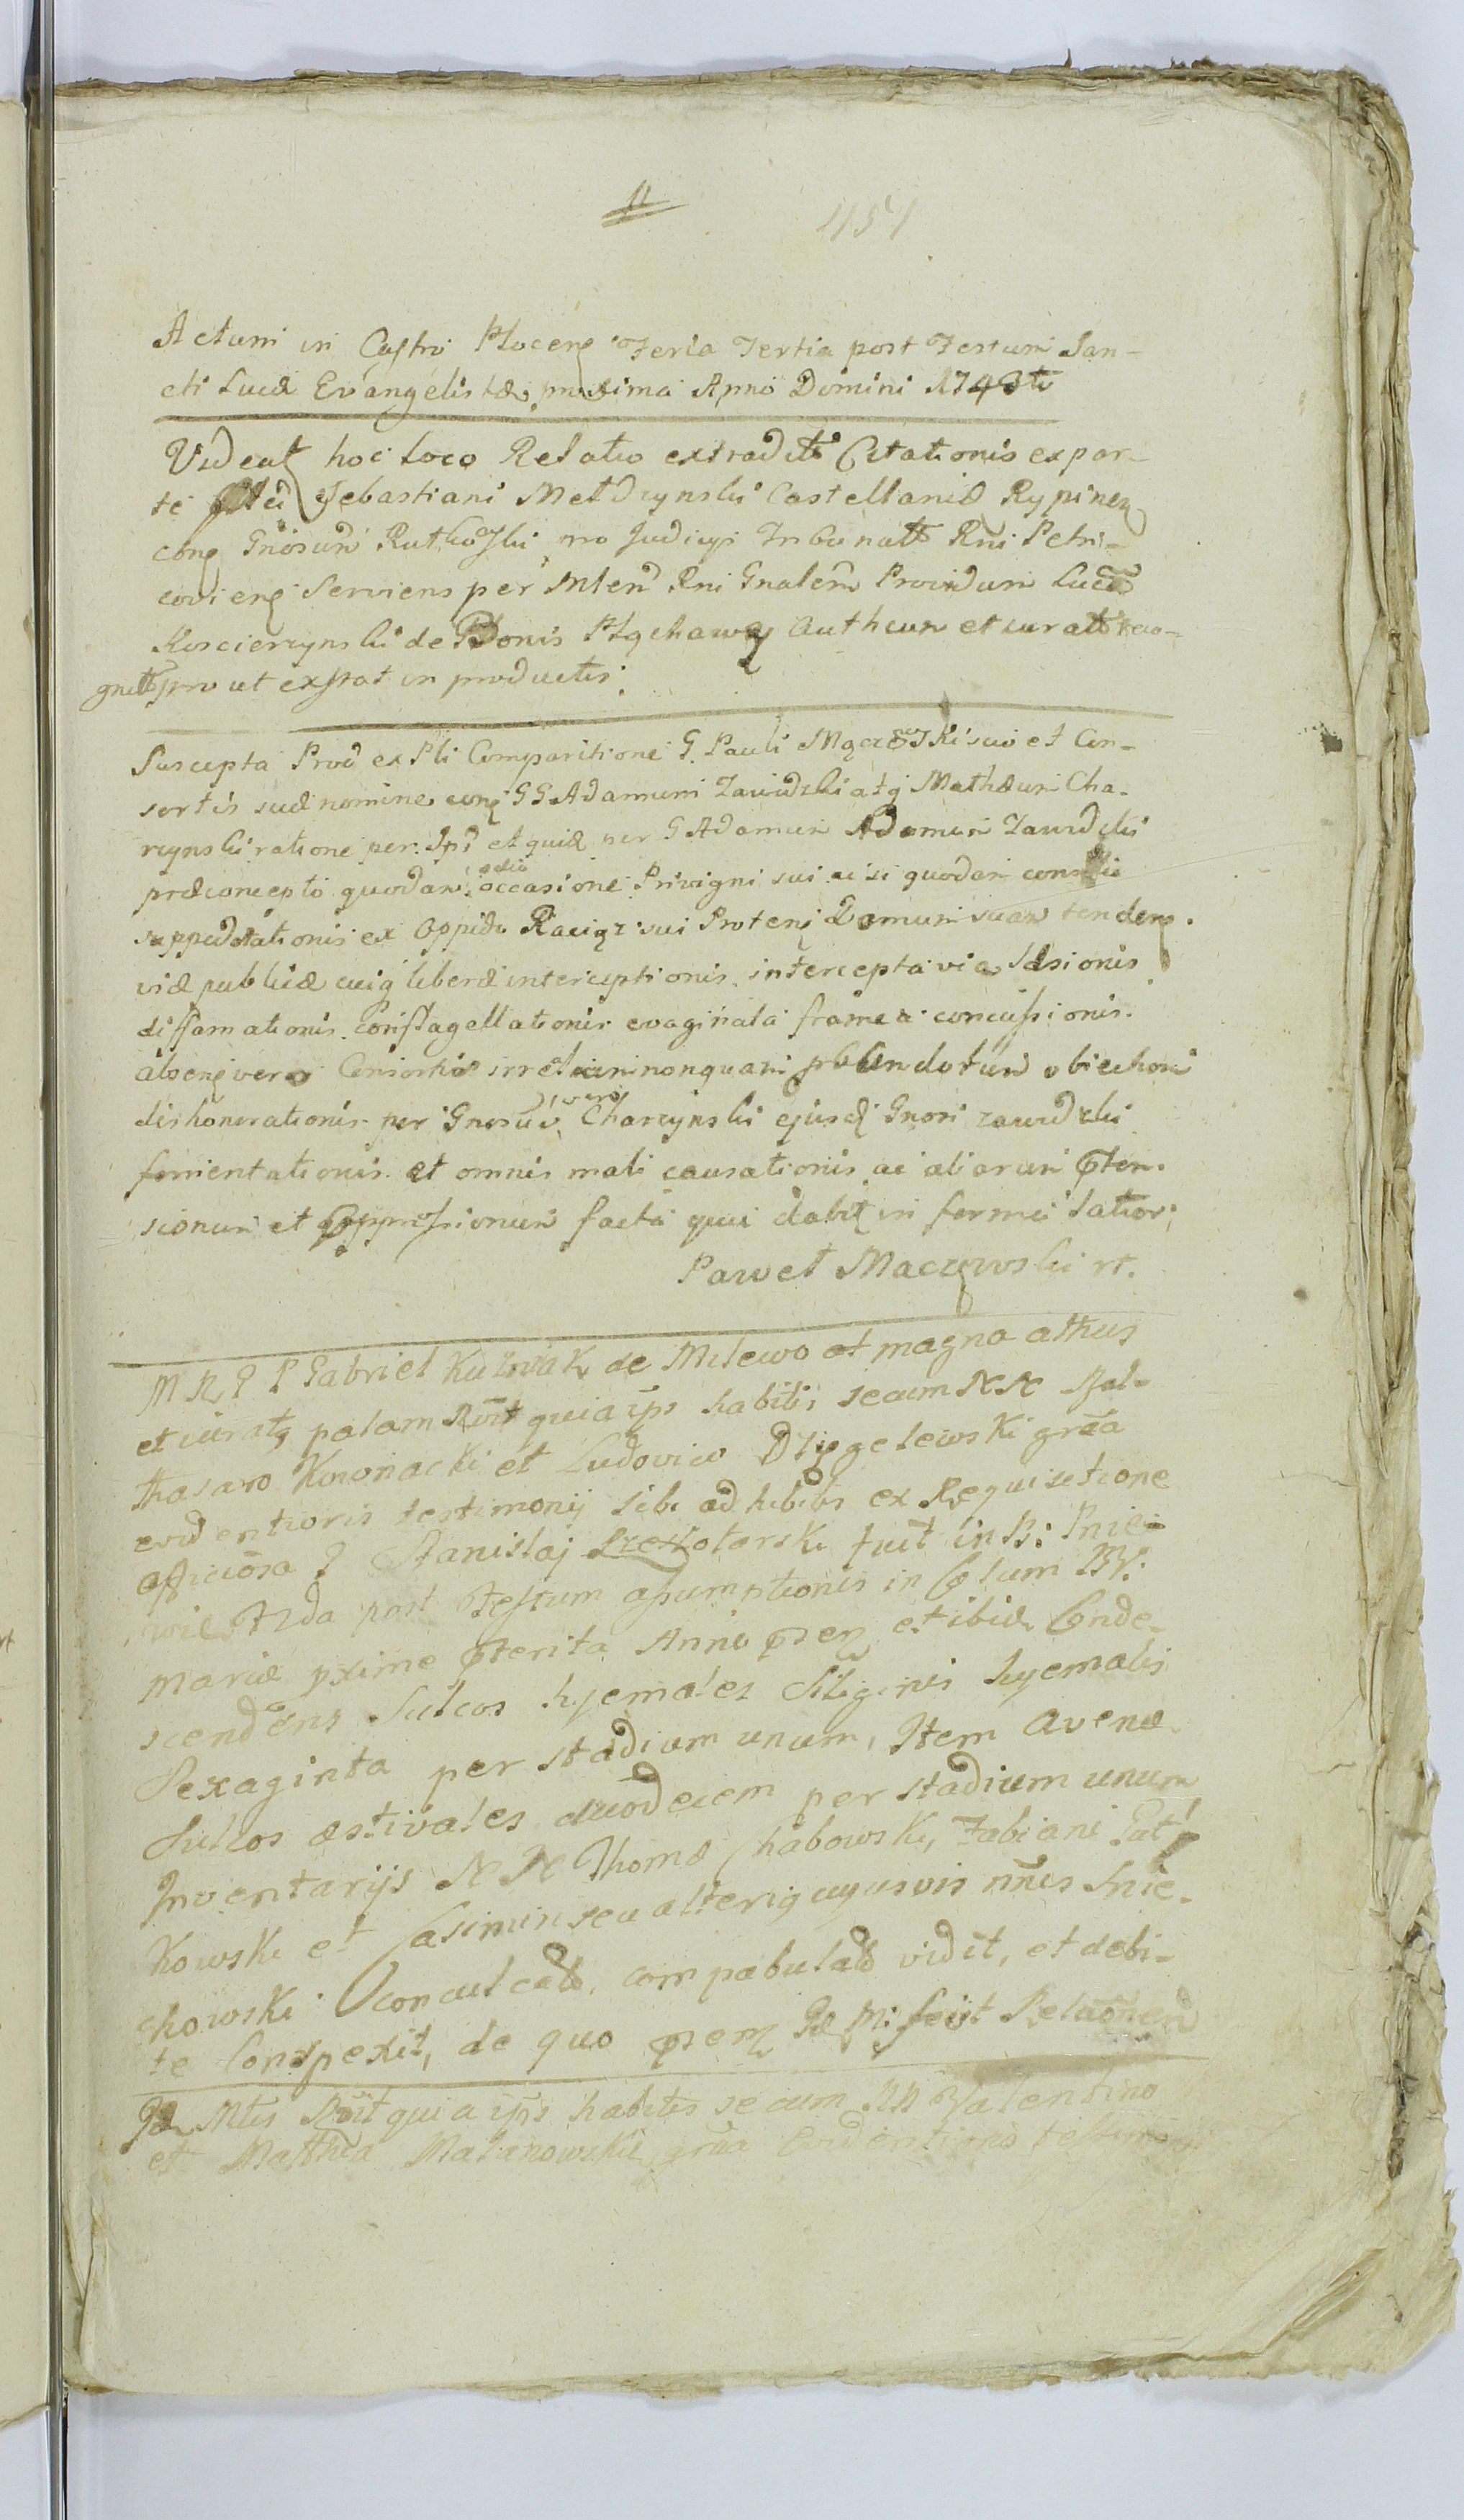 11
451
Actum in Castro Plocen Feria Tertia post Festum San-
cti Lucæ Evangelistæ proxima Anno Domini 1743tio
Videat hoc loco Relatio extradit Citationis ex par-
te Sebastiani Meldzynski Castellanid Rypinen
con Gnosum Rutkoski pro Judicijs Tribunatt Rni Petri-
covien Serviens per Mlem Rni Gnalem Providum Lucam
Koscierzynski de Bonis authcum et curatt reco-
gnitt prout extat in productis
Suscepta Prod ex Pli Comparitione G. Pauli suo et Con-
sortis suæ nomine con GG Adamum Zawidzki atq Mathæum Cha-
rzynski ratione per Ipi et quid per G Adamum Adamum Zawidzki
præconcepto quodam odio occasione Privigni sui ac si quodam
ex Oppido Raciąz sui Proten Domum suam tenden.
viæ publicæ cuiq liberæ interceptionis. intercepta via læsionis
diffamationis. Conflagellationis evaginata framea concussionis.
absenq vero Consortis nonquam obiectiom
dishonorationis. per Gnosum vero Charzynski ejusd Gnosi Zawidzki
fomentationis. et omnis mali causationis ac aliarum pten-
sionum et oppressionum facta qui dabit in forma latior;
Paweł Maczewski rt.
M R P P Gabriel Kuzniak de Milewo et magno
et juratq palam Rvit quia ips habitis secum NN Bal-
thasaro Kownacki et Ludovico Dzięgelewski gra
evidentioris testimonij sibi adhibitis ex Requisitione
officiosa G Stanislaj fuit in B: Pnie-
wie post Festum assumptionis in Clum BV.
Mariæ pxime pterita Anno psen et ibid. Conde-
scendens Sulcos hyemales Siliginis hyemalis
Sexaginta per stadium unum, Item avenæ
Sulcos æstivales duodecem per stadium unum
Inventarijs NN Thomæ Chabowski, Fabiani Gut-
kowski et Casimiri seu alteriq cujusvis nnis Snie-
chowski conculcatt, compabulatt vidit, et debi-
te Conspexit, de quo psem Id M: fecit Relaonem
Id Mlis Rvit quia ips habitis secum NN Valentino
et Matthia Malanowskie gra Evidentioris testimo